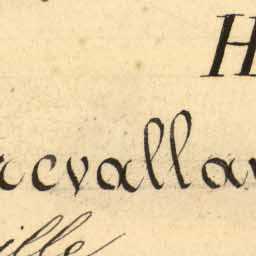 H
revallan
ille